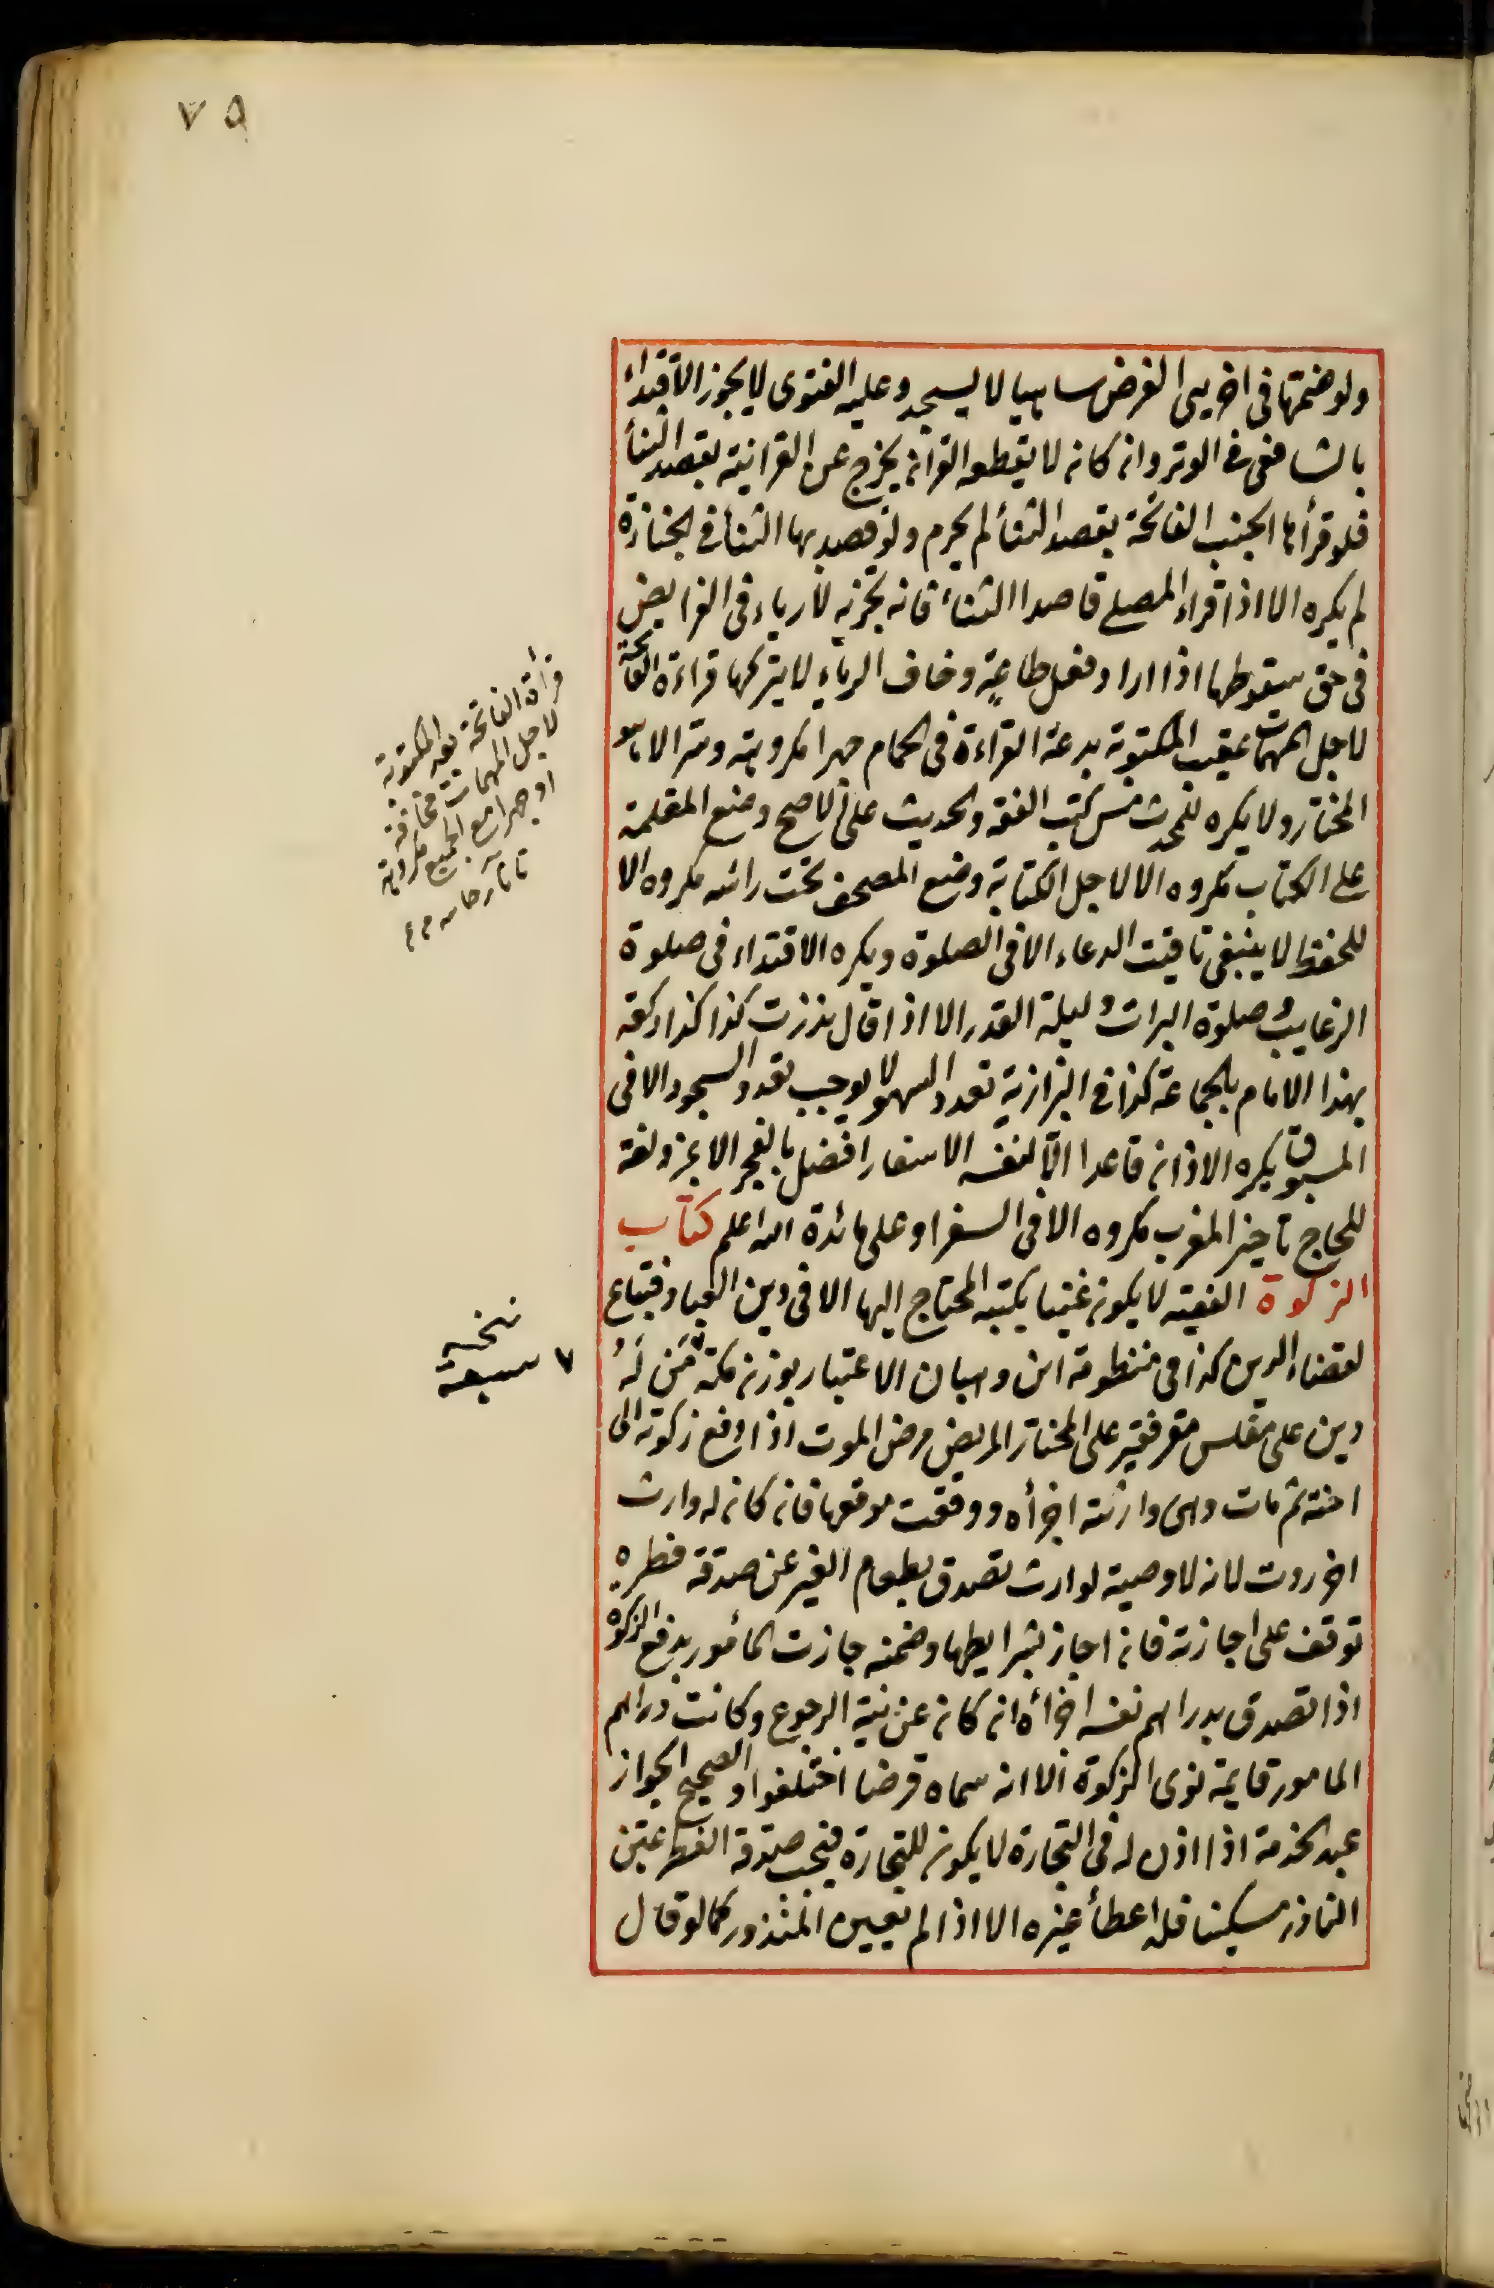 ٧٥
ولو ضمها في اخريي الفرض ساهيا لا يسجد وعليه الفتوى لا يجوز الاقتداء
بالشافعي في الوتر وان كان لا يقطعه القران يخرج عن القرانية بقصد الثنأ
فلو قرأها الجنب الفاتحة بقصد الثنأ لم يحرم ولو قصد بها الثنا في الجنازة
لم يكره الا اذا قراء المصلي قاصدا الثناء فانه تجزئه لا رياء في الفرايض
في حق سقوطها اذا اراد فعل طاعة وخاف الرياء لا يتركها قراءة الفاتحة
لاجل المهمات عقيب المكتوبة بدعة القراءة في الحمام جهرا مكروهة وسرا لا باس هو
المختار ولا يكره للمحدث مس كتب الفقه والحديث على الاصح وضع المقلمة
على الكتاب مكروه الا لاجل الكتابة وضع المصحف تحت رأسه مكروه الا
للحفظ لا ينبغي تاقيت الدعاء الا في الصلوة ويكره الاقتداء في صلوة
الرغايب و صلوة البرات و ليلة القدر الا اذا قال نذرت كذا كذا ركعة
بهذا الامام بالجماعة كذا في البزازية تعدد السهو لا يوجب تعدد السجود الا في
المسبوق يكره الاذان قاعدا الا لنفسه الاسفار افضل بالفجر الا بمزدلفة
للحاج تاخير المغرب مكروه الا في السفر او على مائدة الله اعلم كتاب
الزكوة الفقيه لا يكون غنيا بكتبه المحتاج اليها الا في دين العباد فتباع
لقضاء الدين كذا في منظومة ابن وهبان الاعتبار بوزن مكة ٧ من له
دين على مفلس مقر فقير على المختار المريض مرض الموت اذا دفع زكوته الى
اخته ثم مات وهي وارثته اجزأه ووقعت موقعها فان كان له وارث
اخر ردت لانه لا وصية لوارث تصدق بطعام الغير عن صدقة فطره
توقف على اجازته فان اجاز بشرايطها وضمنه جازت المأمور بدفع الزكوة
اذا تصدق بدراهم نفسه اجزأه ان كان عن نية الرجوع وكانت دراهم
المامور قايمة نوى الزكوة الا انه سماه قرضا اختلفوا والصحيح الجواز
عبد الخدمة اذا اذن له في التجارة لا يكون للتجارة فيجب صدقة الفطر عين
الناذر مسكينا فله اعطأ غيره الا اذا لم يعين المنذور كما لو قال
قراة الفاتحة بعد المكتوبة
لاجل المهمات مخافتة
او جهرا مع الجميع مكروهة
نسخه
٧ سبعة